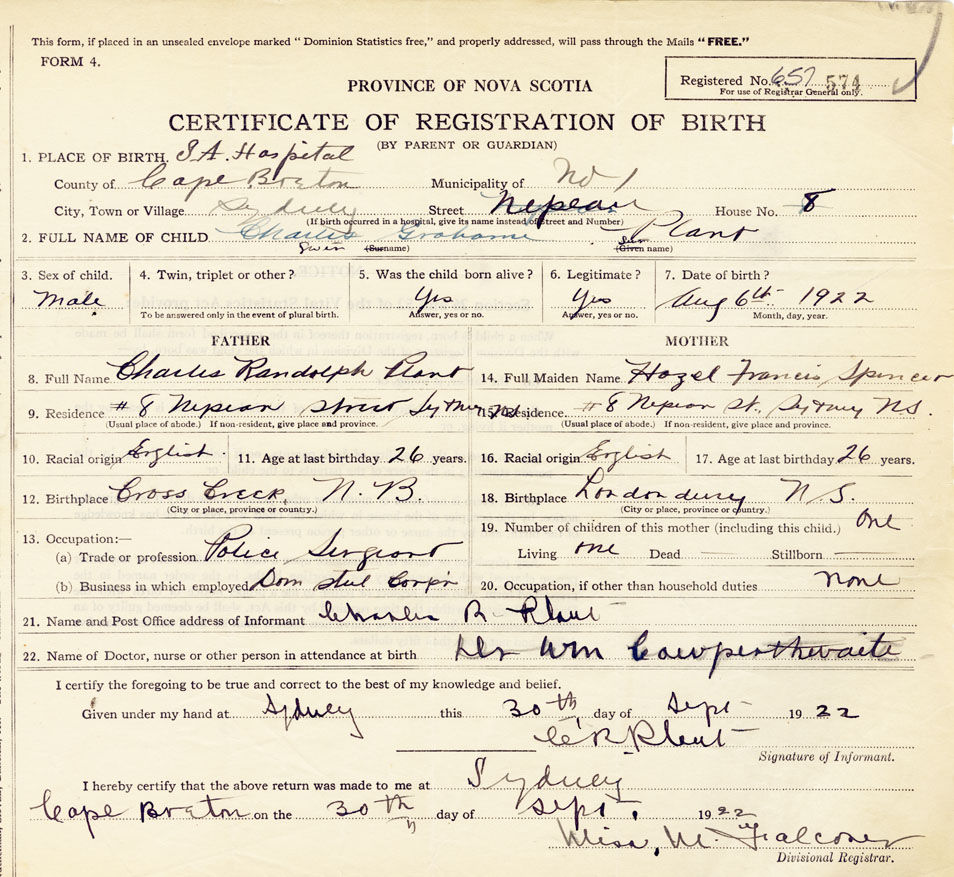 This form, if placed in an unsealed envelope marked " Dominion Statistics free," and properly addressed, will pass through the Mails "FREE."
FORM 4.
Registered No. 657 574
For use of Registrar General only.
PROVINCE OF NOVA SCOTIA
CERTIFICATE OF REGISTRATION OF BIRTH
(BY PARENT OR GUARDIAN)
1. PLACE OF BIRTH. S.A. Hospital
County of Cape Breton Municipality of No 1
City, Town or Village Sydney Street Nepean House No. 8
(If birth occurred in a hospital, give its name instead of Street and Number)
2. FULL NAME OF CHILD Charles Grahame Plant
Given (Surname) Sur (Given name)
3. Sex of child. 4. Twin, triplet or other? 5. Was the child born alive? 6. Legitimate? 7. Date of birth?
Male Yes Yes Aug 6th 1922
To be answered only in the event of plural birth. Answer, yes or no. Answer, yes or no. Month, day, year.
FATHER MOTHER
8. Full Name Charles Randolph Plant 14. Full Maiden Name Hazel Francis Spencer
9. Residence # 8 Nepean Street Sydney N.S. 15. Residence. #8 Nepean St., Sydney NS.
(Usual place of abode.) If non-resident, give place and province. (Usual place of abode.) If non-resident, give place and province.
10. Racial origin English. 11. Age at last birthday 26 years. 16. Racial origin English 17. Age at last birthday 26 years.
12. Birthplace Cross Creek, N.B. 18. Birthplace Londondery N.S.
(City or place, province or country.) (City or place, province or country.)
13. Occupation:— 19. Number of children of this mother (including this child.) One
(a) Trade or profession Police Sergeant Living one Dead Stillborn
(b) Business in which employed Dom Steel Corp'n 20. Occupation, if other than household duties none
21. Name and Post Office address of Informant Charles R. Plant
22. Name of Doctor, nurse or other person in attendance at birth Dr Wm Cowperthwaite
I certify the foregoing to be true and correct to the best of my knowledge and belief.
Given under my hand at Sydney this 30th day of Sept 1922
C R Plant
Signature of Informant.
I hereby certify that the above return was made to me at Sydney
Cape Breton on the 30th day of Sept. 1922
Miss. M. Falconer
Divisional Registrar.